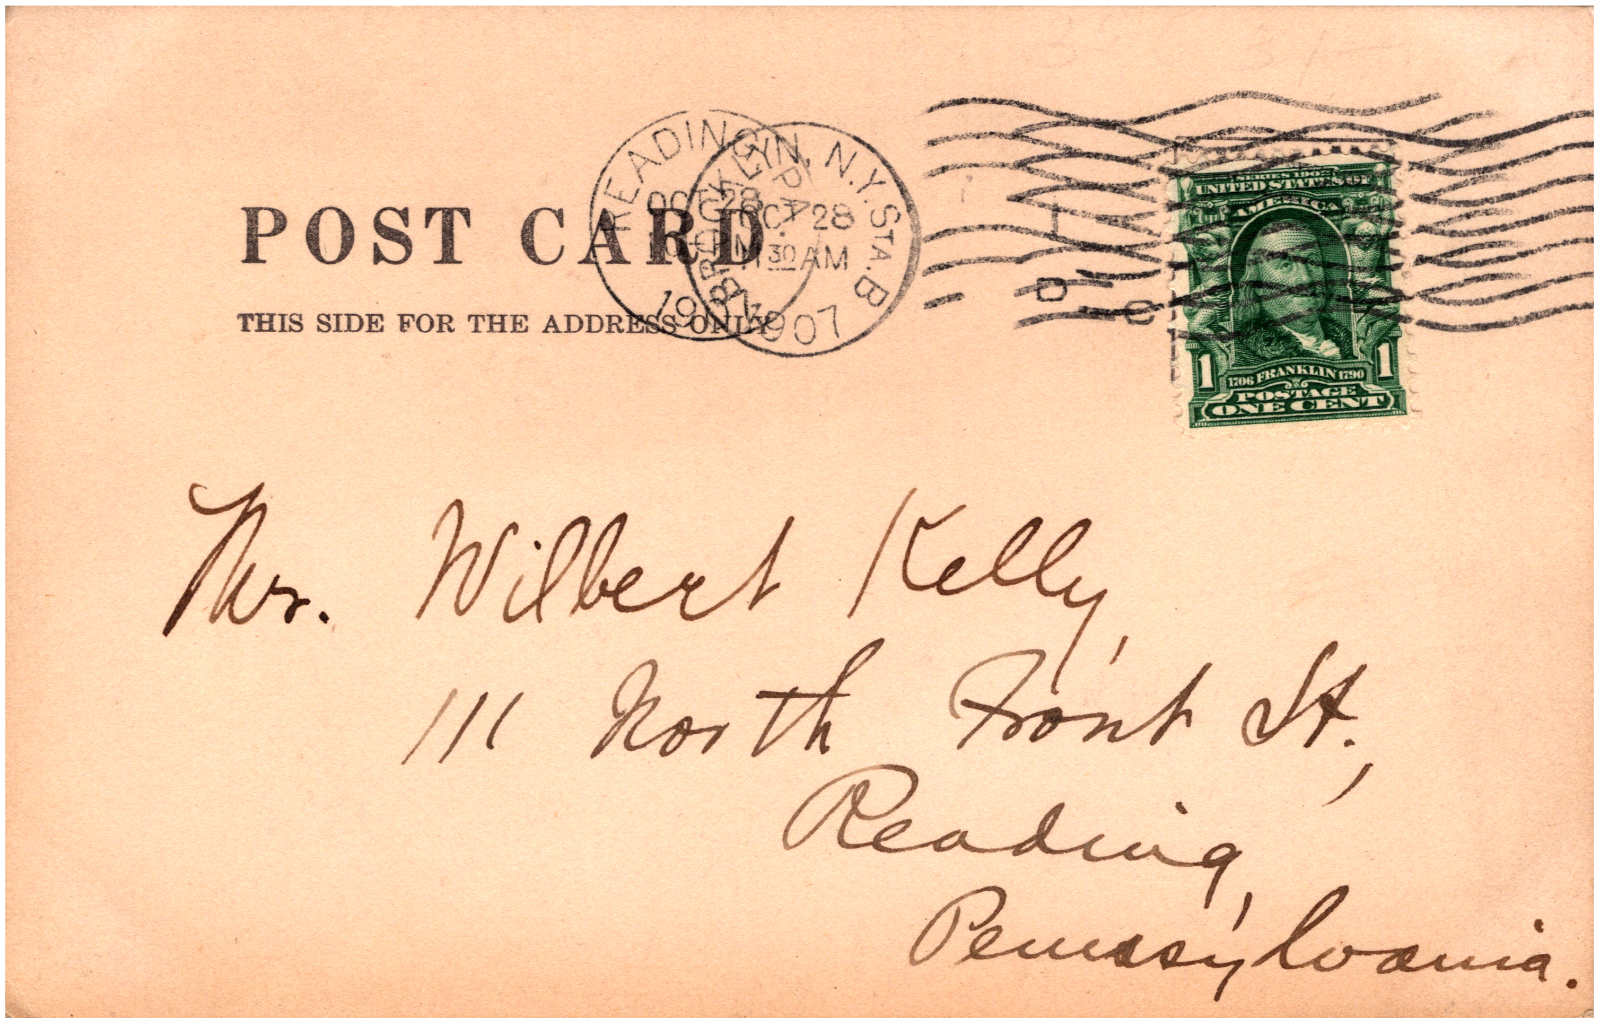 READING, PA.
OCT 28
1907
BROOKLYN, N.Y. STA. B
OCT 28
11 30 AM
1907
POST CARD
THIS SIDE FOR THE ADDRESS ONLY
D
C
SERIES 1902
UNITED STATES OF
AMERICA
1 1
1706 FRANKLIN 1790
POSTAGE
ONE CENT
Mr. Wilbert Kelly,
111 North Front St.,
Reading,
Pennsylvania.